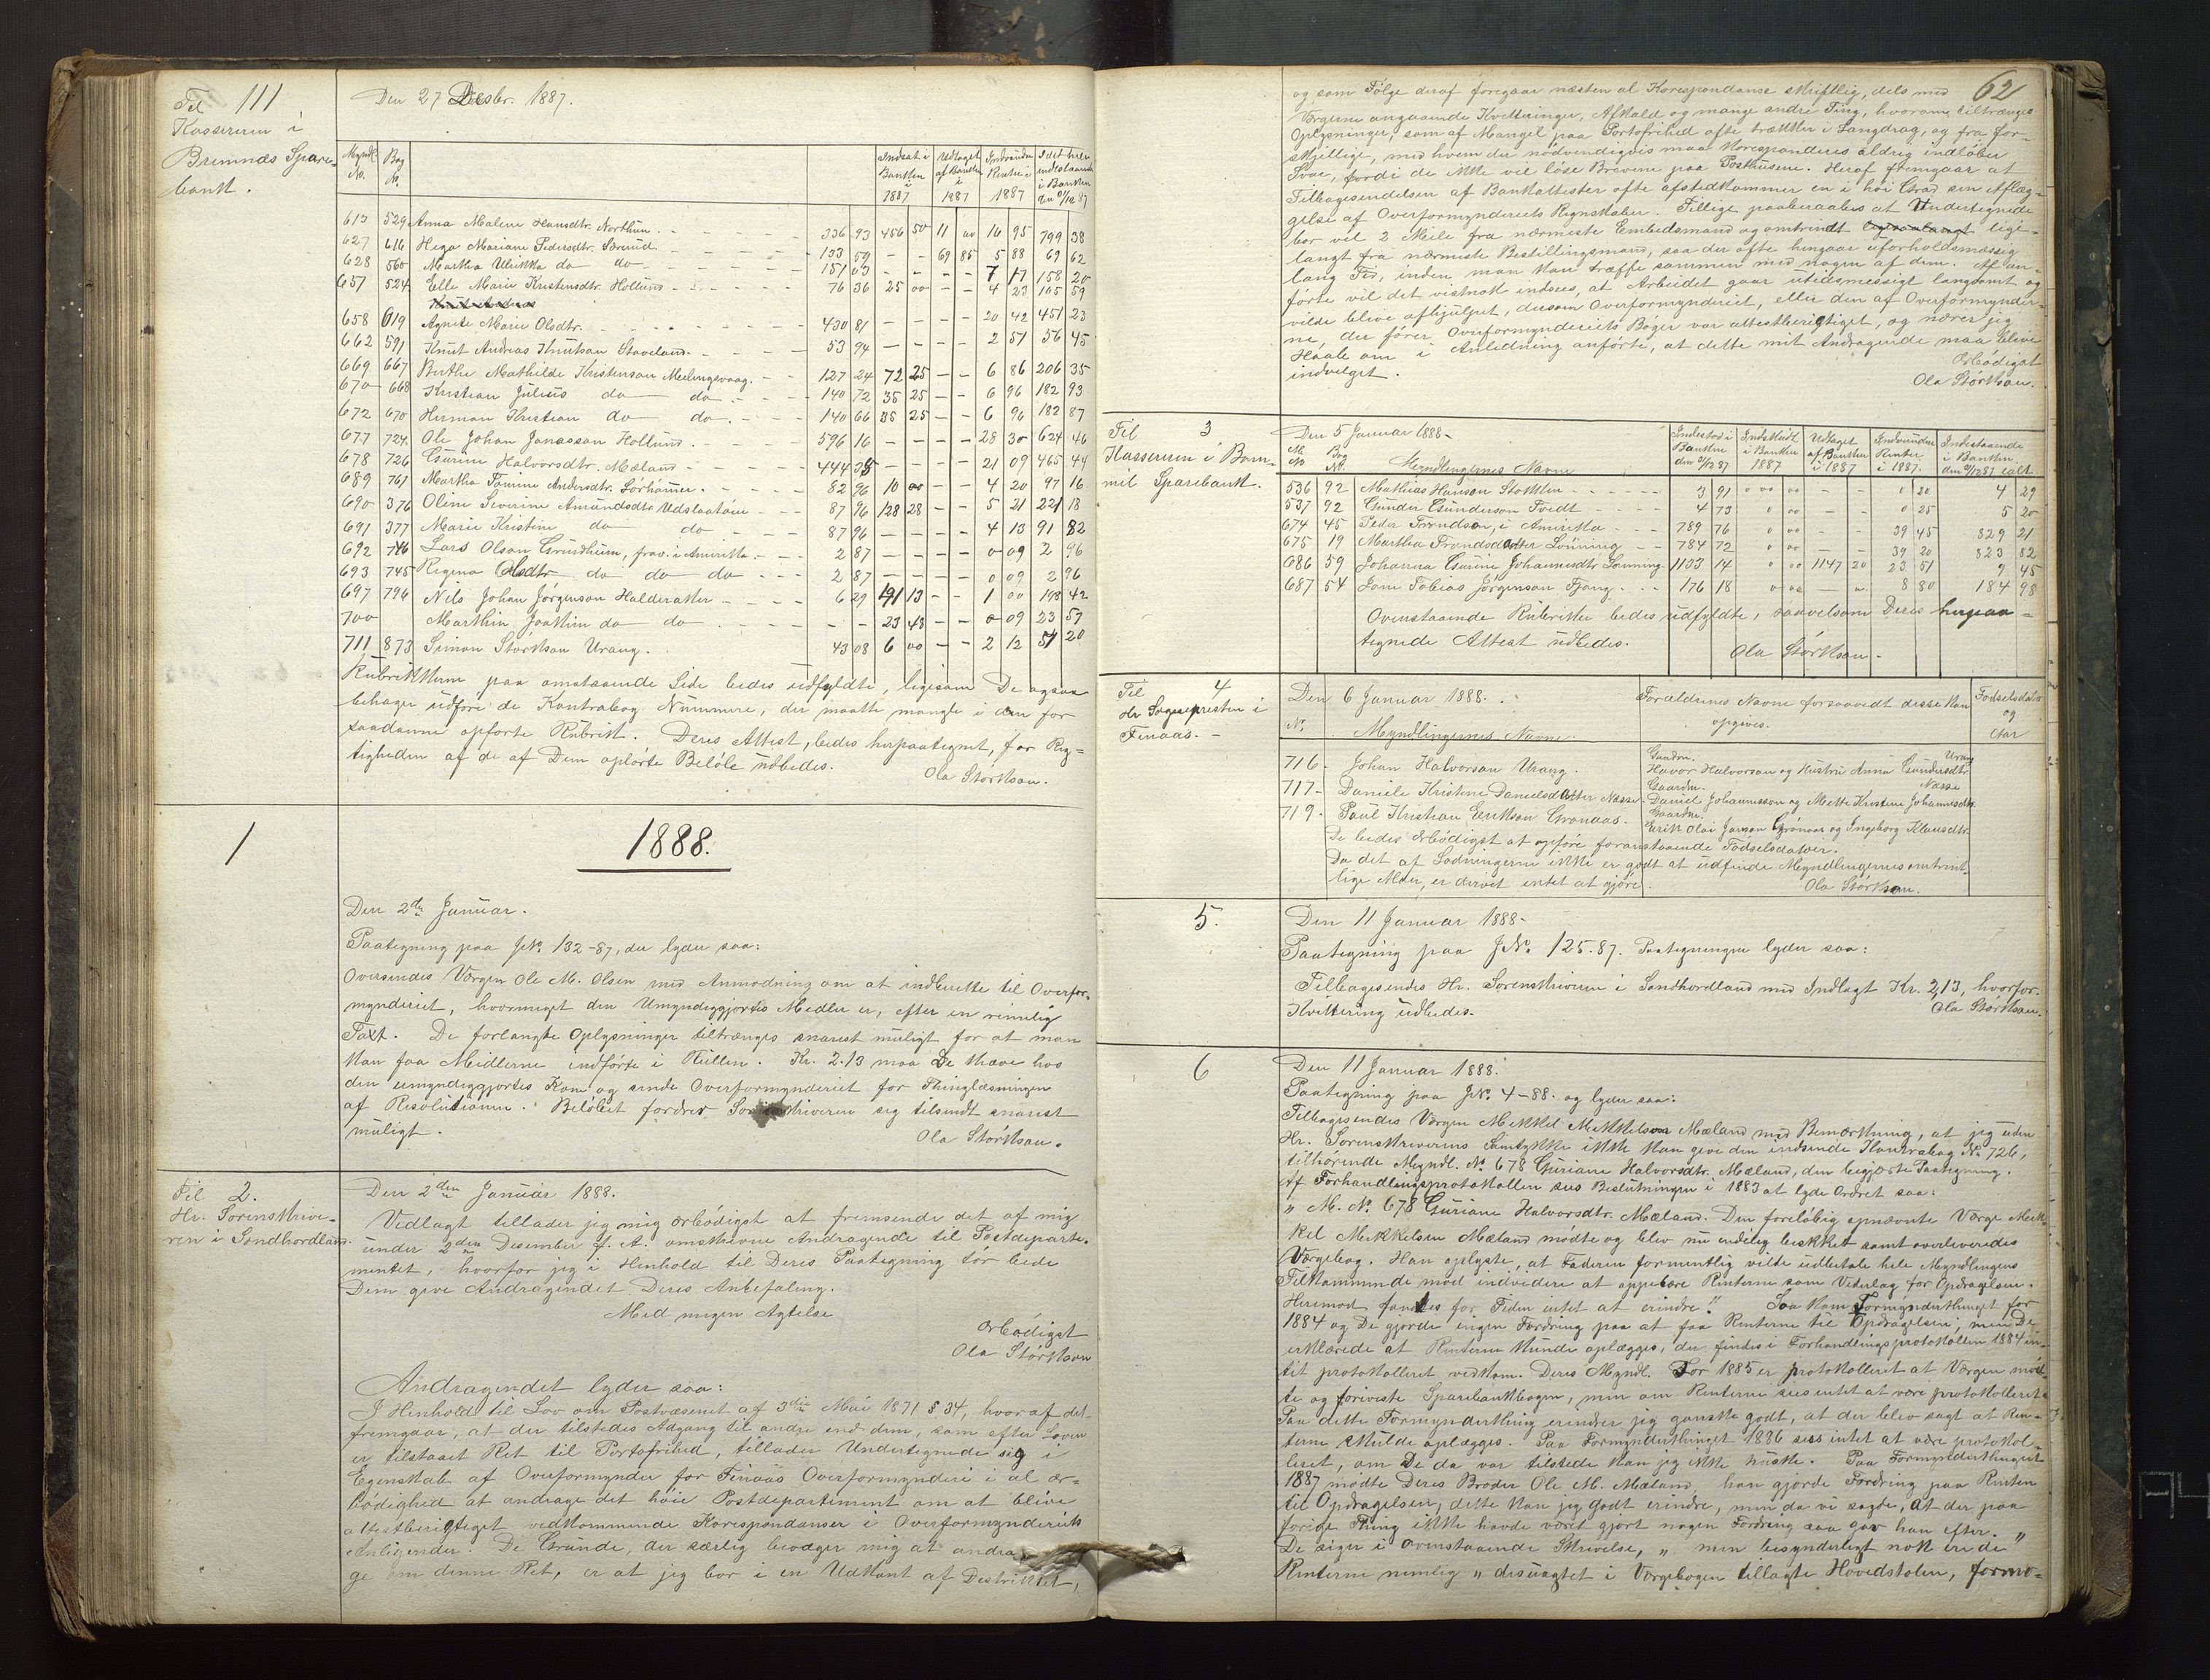 Til 111
Kassereren i
Bremnæs Spare-
bank.
Den 27 Desbr. 1887.
Myndl. No. Bog No. Indsat i Banken i 1887 Udtaget af Banken i 1887 Indvundne Renter i 1887 I det hele indestaaende i Banken den 31/12 87
613 529 Anna Malene Hansdtr. Northun. 336 93 456 50 11 00 16 95 799 38
627 616 Helga Mariane Pedersdtr. Sørund. 133 59 - - 69 85 5 88 69 62
628 560 Martha Ulrikka do do 151 03 - - - - 7 17 158 20
657 524 Elle Marie Kristensdtr. Hollund 76 36 25 00 - - 4 23 105 59
Knut Andreas
658 619 Agnete Marie Olsdtr. 430 81 - - - - 20 42 451 23
662 591 Knut Andreas Knutson Staveland 53 94 - - - - 2 51 56 45
669 667 Birthe Mathilde Kristenson Meelingsvaag. 127 24 72 25 - - 6 86 206 35
670 668 Kristian Julius do do 140 72 35 25 - - 6 96 182 93
672 670 Herman Kristian do do. 140 66 35 25 - - 6 96 182 87
677 724. Ole Johan Janasson Hollund. 596 16 - - - - 28 30 624 46
678 726 Gurine Halvorsdtr. Mæland 444 35 - - - - 21 09 465 44
689 761 Martha Tomine Andersdtr. Sørhamer. 82 96 10 00 - - 4 20 97 16
690 376 Oline Severine Amundsdtr Udslaatøen 87 96 128 28 - - 5 21 221 18
691 377 Marie Kristine do do 87 96 - - - - 4 13 91 82
692 746 Lars Olson Grindheim, frav. i Amerikka 2 87 - - - - 0 09 2 96
693 745 Regina Olsdtr do do do 2 87 - - - - 0 09 2 96
697 796 Nils Johan Jørgenson Halderaker 6 29 191 13 - - 1 00 198 42
700 Marthin Joakkim do do - - 23 48 - - 0 09 23 57
711 873 Simon Størkson Urang. 43 08 6 00 - - 2 12 51 20
Rubrikkerne paa omstaaende Side bedes udfyldte, ligesom De ogsaa
behager udføre de Kontrabog Nummere, der maatte mangle i den for
saadanne opførte Rubrik. Deres Attest, bedes herpaategnet, for Rig-
tigheden af de af Dem opførte Beløb udbedes.
Ola Størkson.
1
1888.
Den 2de Januar.
Paategning paa J.No. 132-87, der lyder saa:
Oversendes Værgen Ole M. Olsen med Anmodning om at indberette til Overfor-
mynderiet, hvormeget den Umyndiggjortes Medler er, efter en rimelig
Taxt. De forlangte Oplysninger tiltrænges snarest muligt for at man
kan faa Meidlerne indførte i Rullen. Kr. 2.13 maa De kræve hos
den umyndiggjortes Kone og sende Overformynderiet for Thinglæsningen
af Resolutionen. Beløbet fordrer Sorenskriveren sig tilsendt snarest
muligt.
Ola Størkson.
Til 2.
Hr. Sorenskrive-
ren i Søndhordland.
Den 2den Januar 1888.
Vedlagt tillader jeg mig ærbødigst at fremsende det af mig
under 2den Desember f. A. omskrevne Andragende til Postdeparte-
mentet, hvorfor jeg i Henhold til Deres Paategning tør bede
Dem give Andragendet Deres Anbefaling.
Med megen Agtelse
Ærbødigst
Ola Størkson
Andragendet lyder saa:
I Henhold til Lov om Postvæsenet af 3die Mai 1871 § 34, hvoraf det
fremgaar, at der tilstedes Adgang til andre end dem, som efter Loven
er tilstaaet Ret til Portofrihed, tillader Undertegnede sig i
Egenskab af Overformynder for Finaas Overformynderi i al ær-
bødighed at andrage det høie Postdepartement om at blive
attestberigtiget vedkommende Korespondanser i Overformynderiets
Anligender. De Grunde, der særlig bevæger mig at andra-
ge om denne Ret, er at jeg bor i en Udkant af Destriktet,
62
og som Følge deraf foregaar næsten al Korespondanse skriftlig, dels med
Værgerne angaaende Kvitteringer, Afkald og mange andre Ting, hvorom tiltrænges
Oplysninger, som af Mangel paa Portofrihed ofte trækker i Langdrag, og fra for-
skjellige, med hvem der nødvendigvis maa korresponderes aldrig indløber
Svar, fordi de ikke vil løse Brevene paa Posthusene. Heraf fremgaar at
Tilbagesendelsen af Bankattester ofte afstedkommer en i høi Grad sen Aflæg-
gelse af Overformynderiets Regnskaber. Tillige paaberaabes at Undertegnede
bor vel 2 Meile fra nærmeste Embedsmand og omtrindt lige-
langt fra nærmeste Bestillingsmand, saa der ofte hengaar uforholdsmæssig
lang Tid, inden man kan træffe sammen med nogen af dem. Af an-
førte vil det vistnok indsees, at Arbeidet gaar utidsmessigt langsomt og
vilde blive afhjulpet, dersom Overformynderiet, eller den af Overformynder-
ne, der fører Overformynderiets Bøger var attestberigtiget, og nærer jeg
Haab om i Anledning anførte, at dette mit Andragende maa blive
indvilget.
Ærbødigst
Ola Størkson.
Til 3
Kassereren i Bøm-
mel Sparebank.
Den 5 Januar 1888-
M No Bog No. Myndlingernes Navne Indestod i Banken den 31/12 87 Indskudt i Banken 1887 Udtaget af Banken i 1887 Indvundne Renter i 1887. Indestaaende i Banken den 31/12 87 ialt
536 92 Mathias Hanson Stokken 3 91 0 00 - - 0 20 4 29
537 92 Gunder Gunderson Tvedt 4 73 0 00 - - 0 25 5 20
674 45 Peder Trondson, i Amerikka 789 76 0 00 - - 39 45 829 21
675 19 Martha Trondsdatter Lønning 784 72 0 00 - - 39 20 823 82
686 59 Johanna Gurine Johannesdtr Lønning 1133 14 0 00 1147 20 23 51 9 45
687 54 Jom Tobias Jørginson Fjøng 176 18 0 00 - - 8 80 184 98
Ovenstaaende Rubrikker bedes udfyldte, saavelsom Deres herpaa-
tegnede Attest udbedes.
Ola Størkson-
Til 4
Hr Sognepresten i
Finaas.
Den 6 Januar 1888.
No. Myndlingernes Navne. Forældrenes Navne forsaavidt disse kan opgives. Fødselsdato og Aar
716. Johan Halvorson Urang. Gaardm. Havor Halvorson og Hustru Anna Gundersdtr Urang
717- Daniele Kristine Danielsdatter Næsse. Gaardm. Daniel Johannesson og Mette Kristine Johannesdtr. Næsse
719. Paul Kristian Erikson Grønaas. Gaardm. Erik Olai Janson Grønaas og Ingeborg Klausdtr.
De bedes ærbødigst at opføre foranstaaende Fødselsdatoer.
Da det af Lodningerne ikke er godt at udfinde Myndlingernes omtrent-
lige Alder, er derved intet at gjøre.
Ola Størkson.
5.
Den 11 Januar 1888-
Paategning paa J.No. 125.87. Paategningen lyder saa:
Tilbagesendes Hr. Sorenskriveren i Søndhordland med Indlagt Kr. 2,13, hvorfor
Kvittering udbedes.
Ola Størkson.
6
Den 11 Januar 1888.
Paategning paa J.No. 4-88. og lyder saa:
Tilbagesendes Værgen Mikkel Mikkelson Mæland med Bemærkning, at jeg uden
Hr. Sorenskriverens Samtykke ikke kan give den indsendte Kontrabog No. 726,
tilhørende Myndl. No. 678 Guriane Halvorsdtr. Mæland, den begjærte Paategning.
Af Forhandlingsprotokollen sees Beslutningen i 1883 at lyde Ordret saa:
"M. No. 678 Guriane Halvorsdtr. Mæland. Den foreløbig opnævnte Værge Mik-
kel Mikkelsen Mæland mødte og blev nu endelig beskikket samt overleveredes
Værgebog. Han oplyste, at Faderen formentlig vilde udbetale hele Myndlingens
Tilkommende mod indvidere at oppebære Renterne som Vederlag for Opdragelsen.
Herimod fandtes for Tiden intet at erindre." Saa kom Formynderthinget for
1884 og De gjorde ingen Fordring paa at faa Renterne til Opdragelsen, men De
erklærede at Renterne kunde oplægges, der findes i Forhandlingsprotokollen 1884 in-
tet protokolleret vedkom. Deres Myndl. For 1885 er protokolleret at Værgen mød-
te og foreviste Sparebankbogen, men om Renterne sees intet at være protokolleret.
Paa dette Formynderthing erindrer jeg ganske godt, at der blev sagt at Ren-
terne skulde oplægges. Paa Formynderthinget 1886 sees intet at være protokol-
leret, om De da var tilstede kan jeg ikke huske. Paa Formynderthinget
1887 mødte Deres Broder Ole M. Mæland, han gjorde Fordring paa Renten
til Opdragelsen, dette kan jeg godt erindre, men da vi sagde, at der paa
forige Thing ikke havde været gjort nogen Fordring saa gav han efter.
De siger i ovenstaaende Skrivelse, "men besynderligt nok er de"
Renterne nemlig "desuagtet i Værgebogen tillagte Hovedstolen, formo-